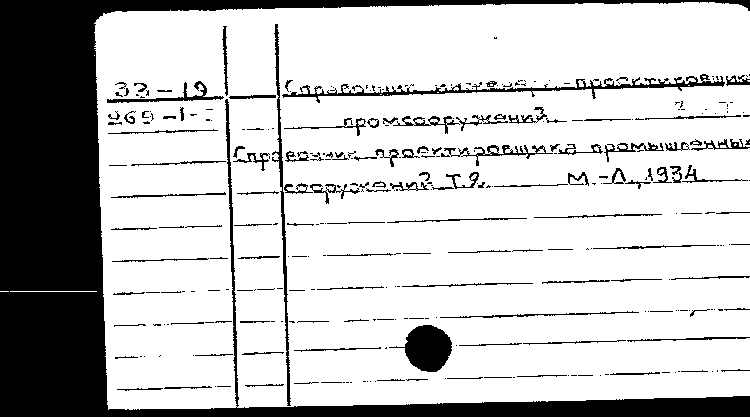 33-19 Справочник инженера-проектировщика
269-1- промсооружений. 2 т
Справочник проектировщика промышленных
сооружений Т.2. М.-Л., 1934